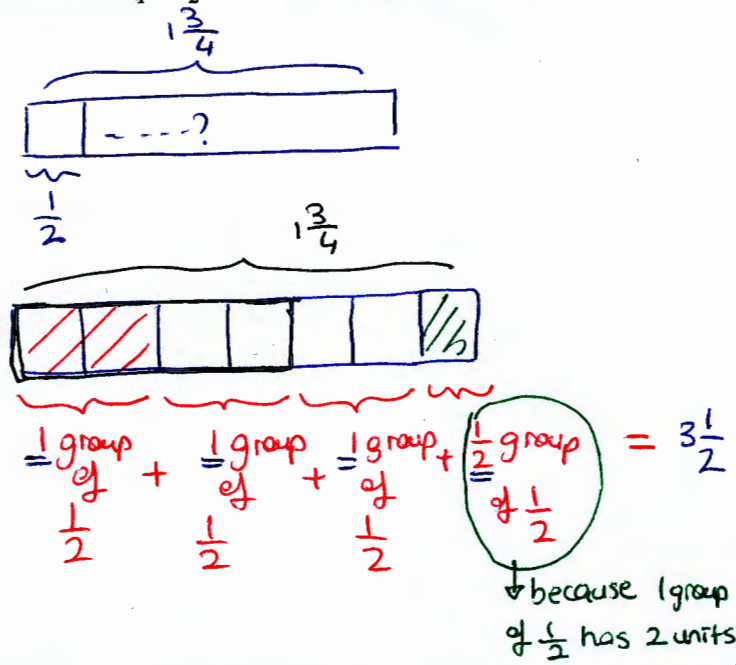 1 3/4
- - - - - ?
1/2
1 3/4
1 group of 1/2 + 1 group of 1/2 + 1 group of 1/2 + 1/2 group of 1/2 = 3 1/2
because 1 group
of 1/2 has 2 units